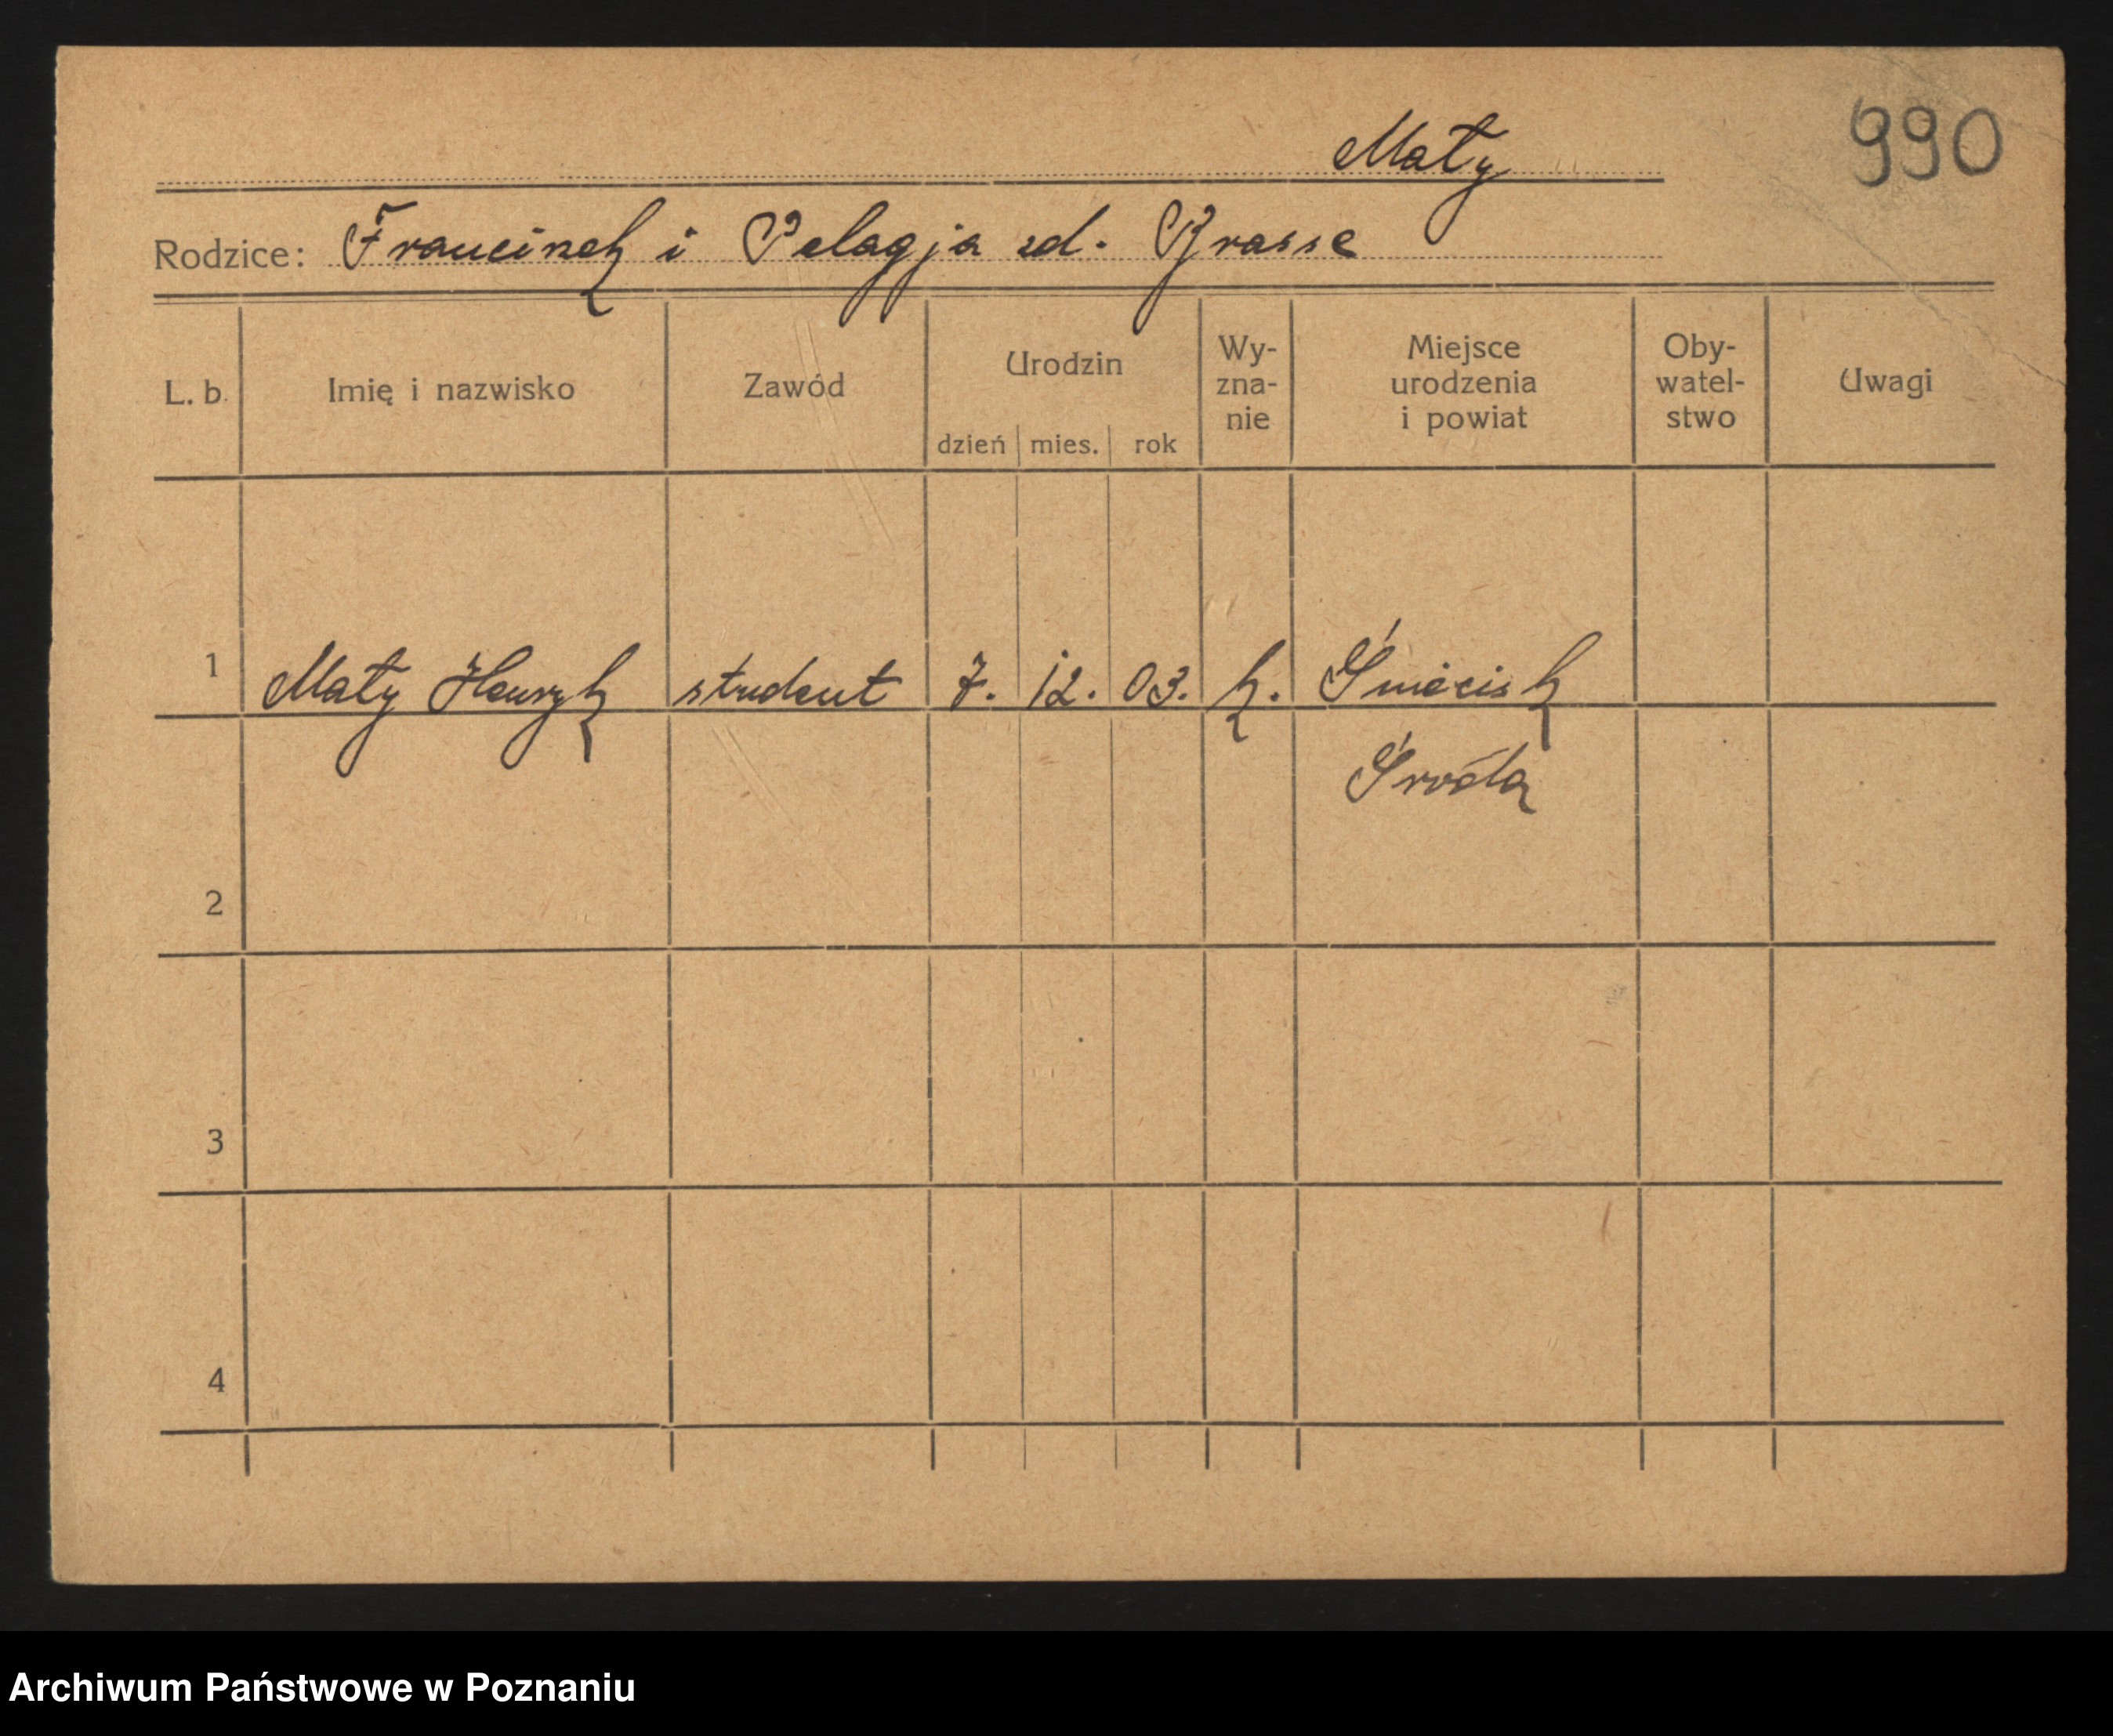 990
Mały
Rodzice: Franciszek i Pelagja zd. Brasse
L. b. Imię i nazwisko Zawód Urodzin dzień mies. rok Wy-zna-nie Miejsce urodzenia i powiat Oby-watel-stwo Uwagi
1 Mały Henryk student 7. 12. 03. k. Śniecisk
Środa
2
3
4
Archiwum Państwowe w Poznaniu